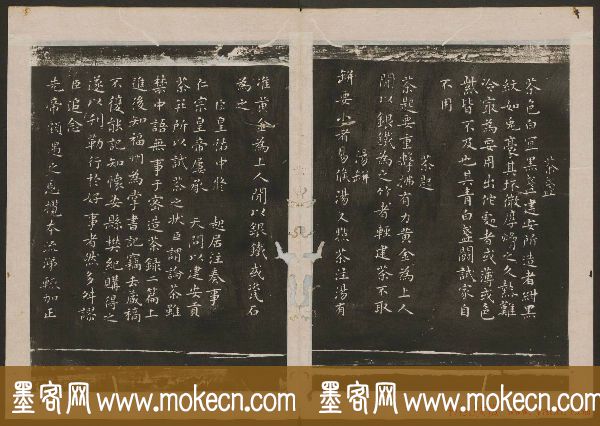 茶盞
茶色白宜黑盞建安所造者紺黑
紋如兔毫其坯微厚熁之久熱難
冷最為要用出他處者或薄或色
紫皆不及也其青白盞鬪試家自
不用
茶匙
茶匙要重擊拂有力黃金為上人
間以銀鐵為之竹者輕建茶不取
湯缾
缾要小者易候湯又點茶注湯有
准黃金為上人間以銀鐵或瓷石
為之
臣皇祐中修 起居注奏事
仁宗皇帝屢承 天問以建安貢
茶并所以試茶之狀臣謂論茶雖
禁中語無事于密造茶錄二篇上
進後知福州為掌書記竊去藏稿
不復能記知懷安縣樊紀購得之
遂以刋勒行於好事者然多舛謬
臣追念
先帝顧遇之恩攬本流涕輒加正
墨客网 www.mokecn.com 墨客网 www.mokecn.com